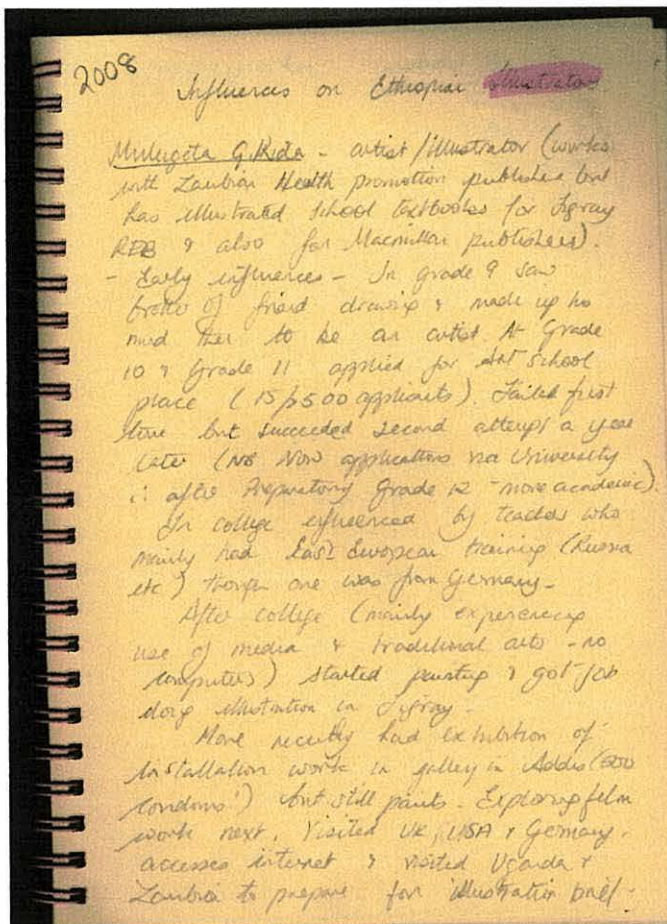 2008
Influences on Ethiopian Illustrator
Mulugeta G.Kida - artist/illustrator (works
with Zambian Health promotion publisher but
has illustrated School textbooks for Tigray
REB & also for Macmillan publishers).
- Early influences - In grade 9 saw
brother of friend drawing & made up his
mind then to be an artist. At Grade
10 & Grade 11 applied for Art School
place (15/2500 applicants). Failed first
time but succeeded second attempt a year
later (NB Now applications via University
∴ after Preparatory Grade 12 - more academic).
In college influenced by teachers who
mainly had East European training (Russia
etc) though one was from Germany.
After college (mainly experiencing
use of media & traditional arts - no
computers) started painting & got job
doing illustration in Tigray.
More recently had exhibition of
installation work in gallery in Addis (500
condoms!) but still paints. Exploring film
work next. Visited UK, USA & Germany.
accesses internet & visited Uganda &
Zambia to prepare for illustration